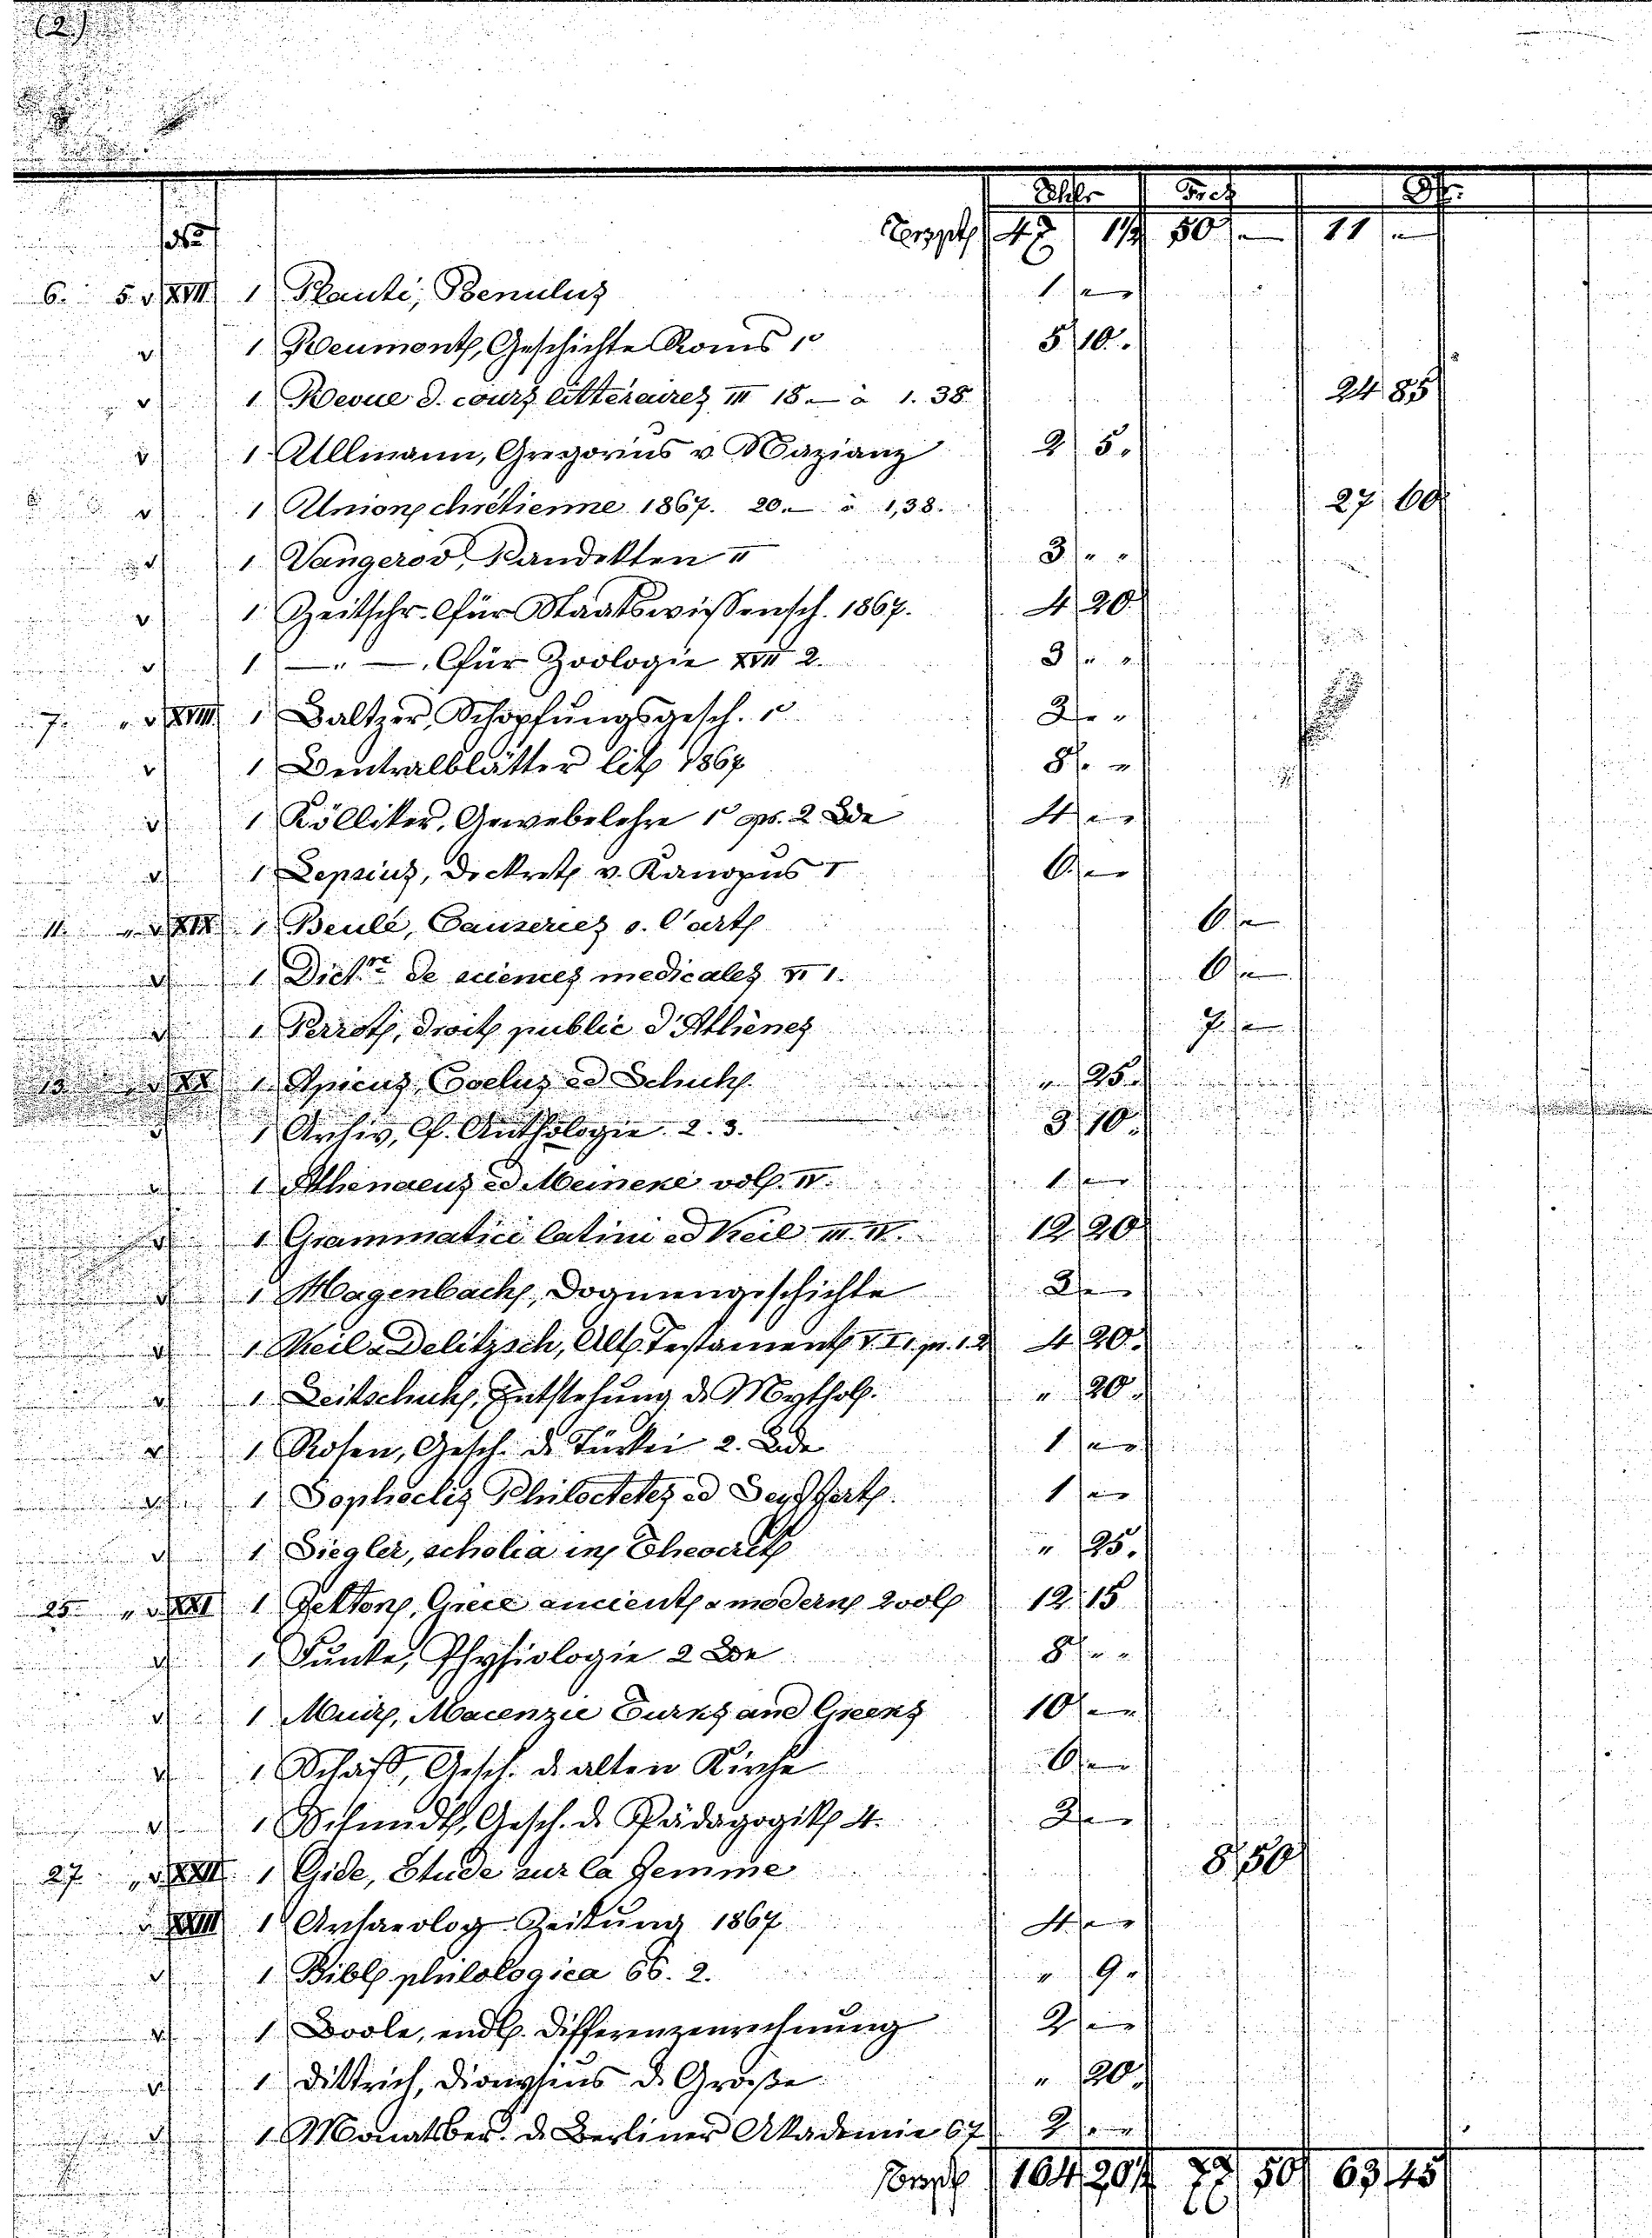 (2)
Thlr Frcs Dr.
No Transpt 47 1½ 50 „— 11 „—
6. 5. v XVII 1 Plauti, Poenulus 1 „ „
v 1 Reumont, Geschichte Roms 1º 5 10.
v 1 Revue d. cours littéraires III 18.— à 1.38 24 85
v 1 Ullmann, Gregorius v Nazianz 2 5.
v 1 Union chrétienne 1867. 20.— à 1,38. 27 60
v 1 Vangerov, Pandekten II 3 „ „
v 1 Zeitschr. für Staatswissensch. 1867. 4 20
v 1 — „ — für Zoologie XVII 2. 3 „ „
7. „ v XVIII 1 Baltzer, Schöpfungsgesch. 1º 2 „ „
v 1 Centralblätter lit 1867 8 „ „
v 1 Kölliker, Gewebelehre 1º 2 Bde 4 „ „
v 1 Lepsius, Deckret v. Kanopus I 6 „ „
11. „ v XIX 1 Beulé, Causeries s. l'art 6 „—
v 1 Dictre de sciences medicales VI 1. 6 „—
v 1 Perrot, droit public d'Athènes 7 „—
13 „ v XX 1 Apicus, Coelus ed Schuh „ 25.
v 1 Archiv, f. Anthologie 2. 3. 3 10.
v 1 Athenaeus ed Meineke vol. IV. 1 „ „
v 1 Grammatici latini ed Keil III. IV. 12 20
v 1 Hagenbach, Dogmengeschichte 2 „ „
v 1 Keil & Delitzsch, Alt. Testament 4 20.
v 1 Leitschuh, Entstehung d. Mythol. „ 20.
v 1 Rosen, Gesch. d. Türkei 2. Bde 1 „ „
v 1 Sophoclis Philoctetes ed Seyffert. 1 „ „
v 1 Siegler, scholia in Theocrit „ 25.
25 „ v XXI 1 Felton, Greece ancient & modern 2 vol 12 15
v 1 Funke, Physiologie 2 Bde 8 „ „
v 1 Muir, Macenzie Turks and Greeks 10 „ „
v 1 Schaff, Gesch. d. alten Kirche 6 „ „
v 1 Schmidt, Gesch. d. Pädagogik 4. 2 „ „
27. „ v XXII 1 Gide, Etude sur la femme 8 50
v XXIII 1 Archaeolog Zeitung 1867 4 „ „
v 1 Bibl. philologica 66. 2. „ 9 „
v 1 Boole, endl. Differenzenrechnung 2 „ „
v 1 Dittrich, Dionysius d. Große „ 20.
v 1 Monatsber. d. Berliner Akademie 67 2 „ „
Transpt 164 20½ 77 50 63 45